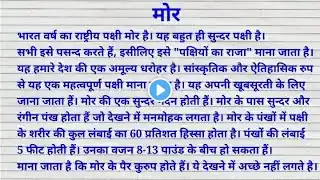 मोर
भारत वर्ष का राष्ट्रीय पक्षी मोर है। यह बहुत ही सुन्दर पक्षी है।
सभी इसे पसन्द करते हैं, इसीलिए इसे "पक्षियों का राजा" माना जाता है।
यह हमारे देश की एक अमूल्य धरोहर है। सांस्कृतिक और ऐतिहासिक रुप
से यह एक महत्वपूर्ण पक्षी माना है। यह अपनी खूबसूरती के लिए
जाना जाता हैं। मोर की एक सुन्दर होती हैं। मोर के पास सुन्दर और
रंगीन पंख होता हैं जो देखने में मनमोहक लगता है। मोर के पंखों में पक्षी
के शरीर की कुल लंबाई का 60 प्रतिशत हिस्सा होता है। पंखों की लंबाई
5 फीट होती हैं। उनका वजन 8-13 पाउंड के बीच हो सकता हैं।
माना जाता है कि मोर के पैर कुरुप होते हैं। ये देखने में अच्छे नहीं लगते है।